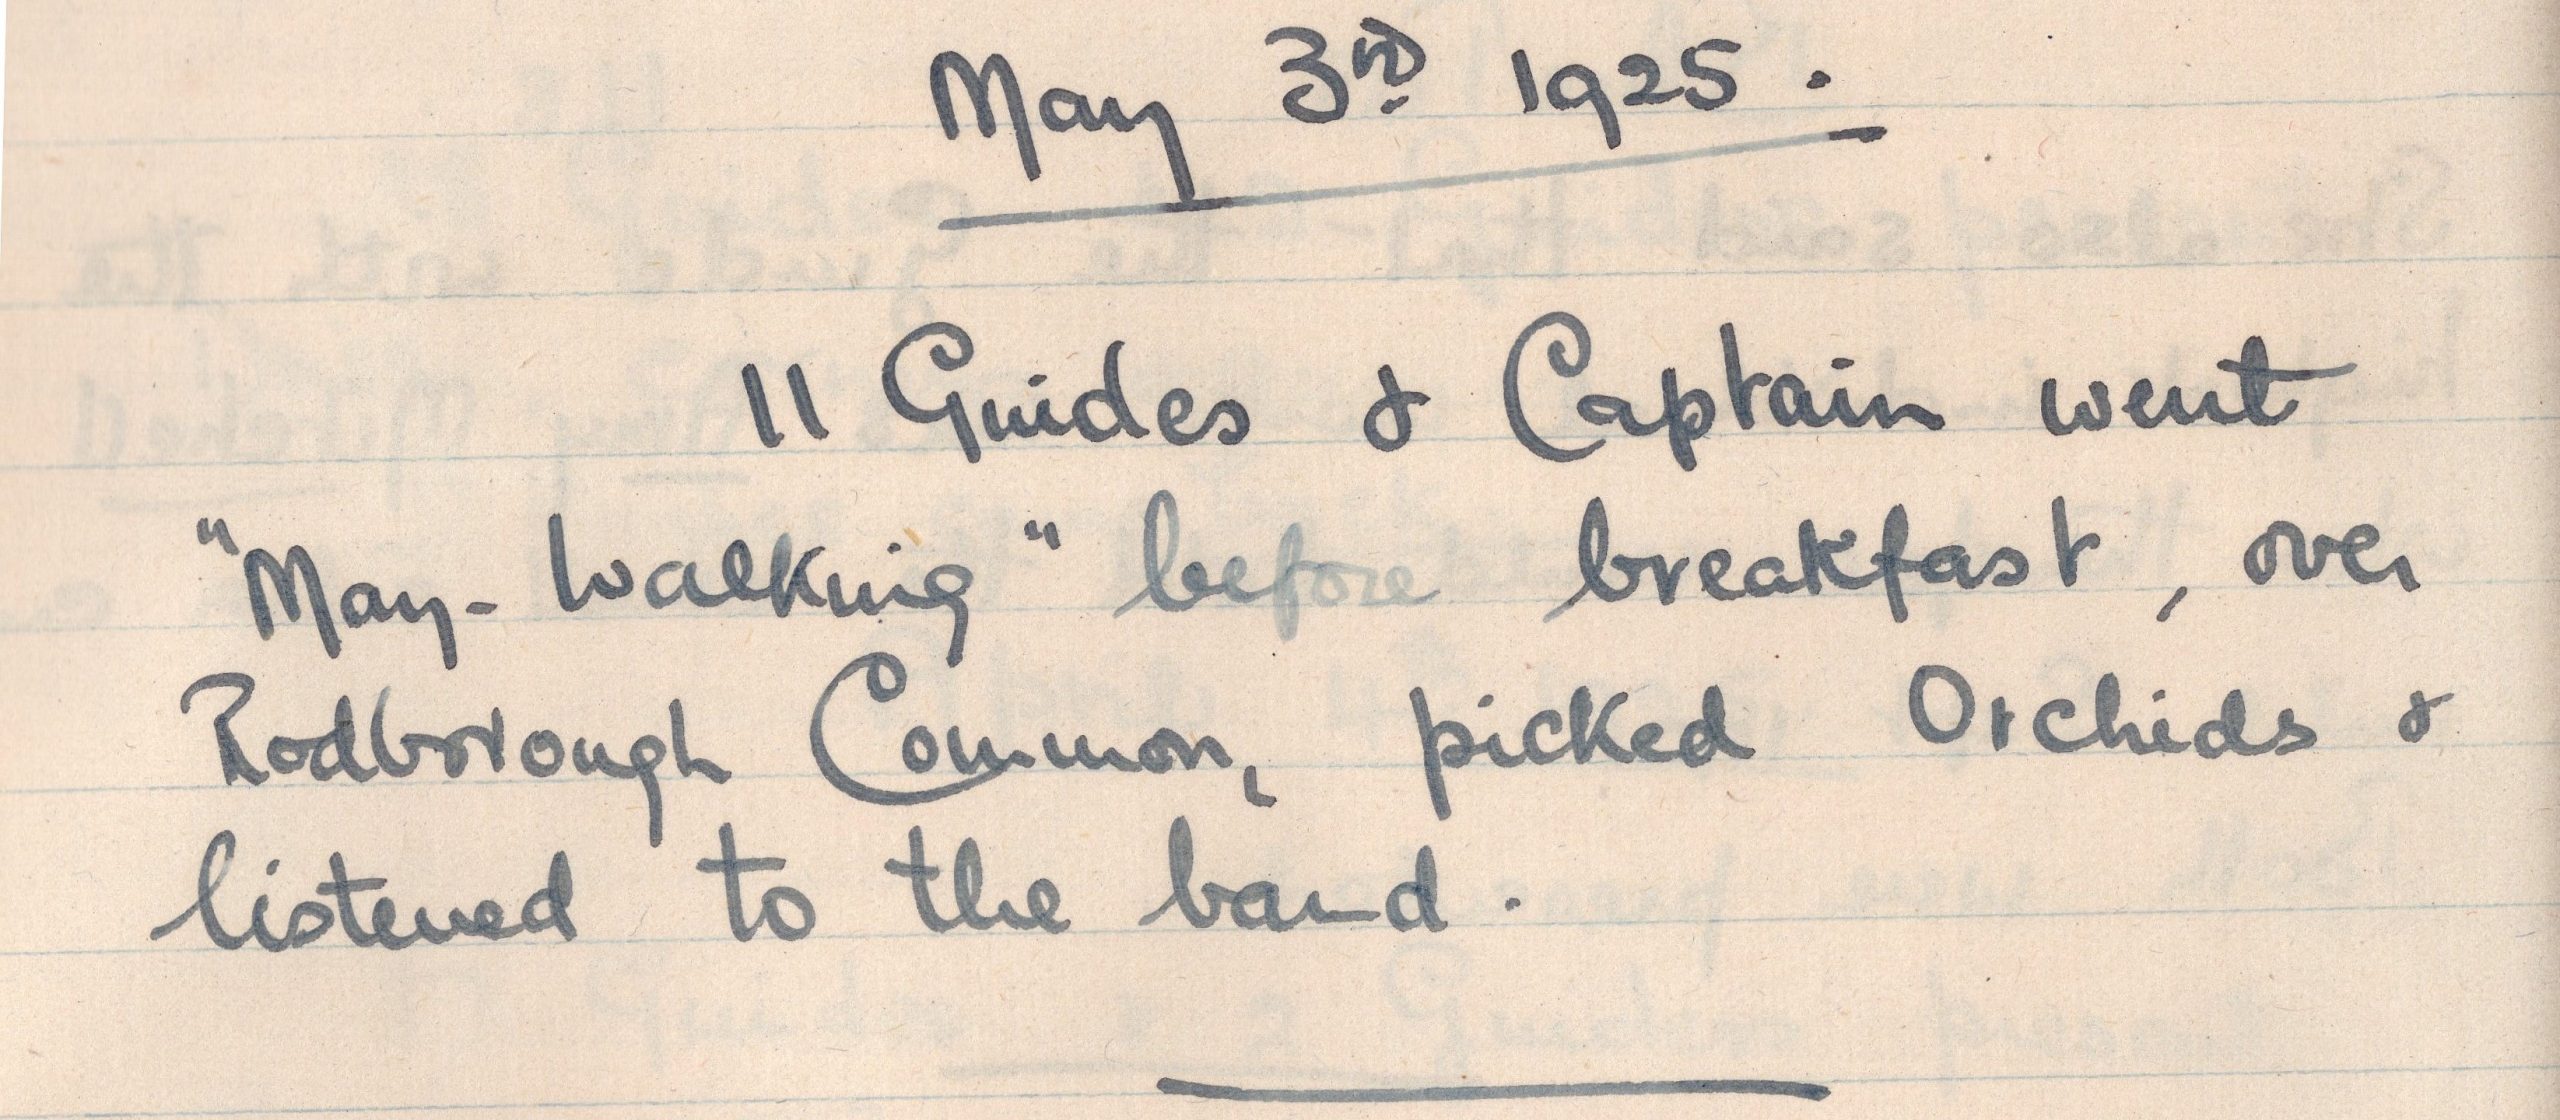 May 3rd 1925.
11 Guides & Captain went
"May-Walking" before breakfast, over
Rodborough Common, picked Orchids &
listened to the band.